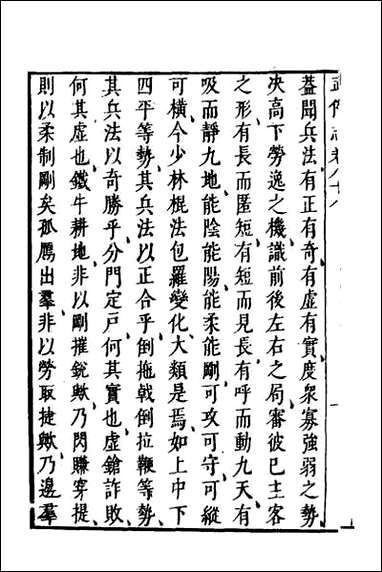 蓋聞兵法有正有奇有虛有實度衆寡強弱之勢
决高下勞逸之機識前後左右之局審彼已主客
之形有長而匿短有短而見長有呼而動九天有
吸而靜九地能陰能陽能柔能剛可攻可守可縱
可橫今少林棍法包羅變化大類是焉如上中下
四平等勢其兵法以正合乎倒拖戟倒拉鞭等勢
其兵法以奇勝乎分門定戶何其實也虛鎗詐敗
何其虛也鐵牛耕地非以剛摧銳歟乃閃賺穿提
則以柔制剛矣孤鴈出羣非以勞取捷歟乃邊羣